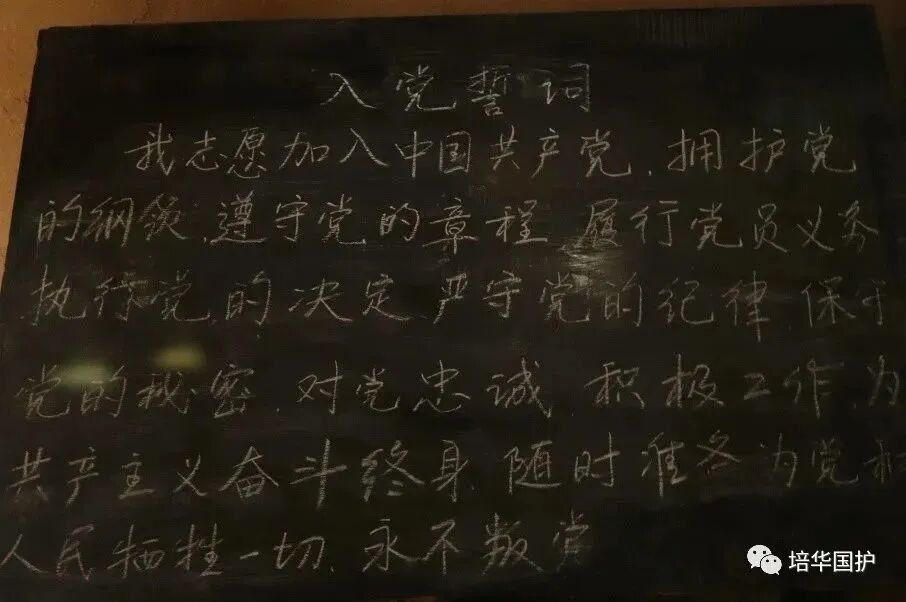 入党誓词
我志愿加入中国共产党,拥护党
的纲领,遵守党的章程 履行党员义务
执行党的决定,严守党的纪律,保守
党的秘密,对党忠诚 积极工作,为
共产主义奋斗终身,随时准备为党和
人民牺牲一切,永不叛党
培华国护